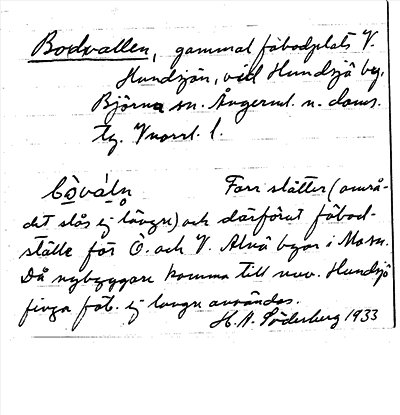 Bodvallen, gammal fäbodplats V.
Hundsjön, vid Hundsjö by,
Björna sn. Ångerml. n. doms.
tg. Vnorrl. l.
bòvál̥n Förr slåtter (områ-
det slås ej längre) och därförut fäbod-
ställe för Ö. och V. Alnä byar i Mosn.
Då nybyggare komma till nuv. Hundsjö
finga fäb. ej längre användas.
H. A. Söderberg 1933